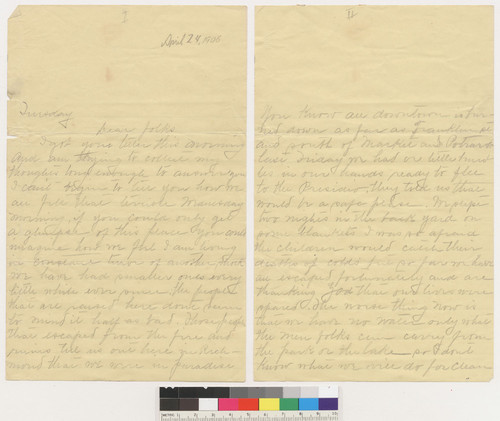 I
April 24, 1906
Tuesday
Dear folks
I got your letter this morning
and am trying to collect my
thoughts long enough to answer you
I can't begin to tell you how we
all felt that terrible Wednesday
morning if you could only get
a glimpse of this place you would
imagine how we feel I am living
in constant fear of another shock
we have had smaller ones every
little while ever since the people
that are raised here don't seem
to mind it half as bad. Those people
that escaped from the fire and
ruins tell us out here in Rich-
mond that we were in paradise
II
You know all downtown is burn-
ed down as far as Franklin st
and north of Market and
last Friday we had our little
in our hands ready to flee
to the Presidio, they told us that
would be a safe place. We slept
two nights in the back yard on
some blankets I was so afraid
the children would catch their
death of colds but so far we have
all escaped fortunately and are
thanking God that our lives were
spared. The worse thing now is
that we have no water only what
the men folks can carry from
the park or the lake so I dont
know what we will do for clean